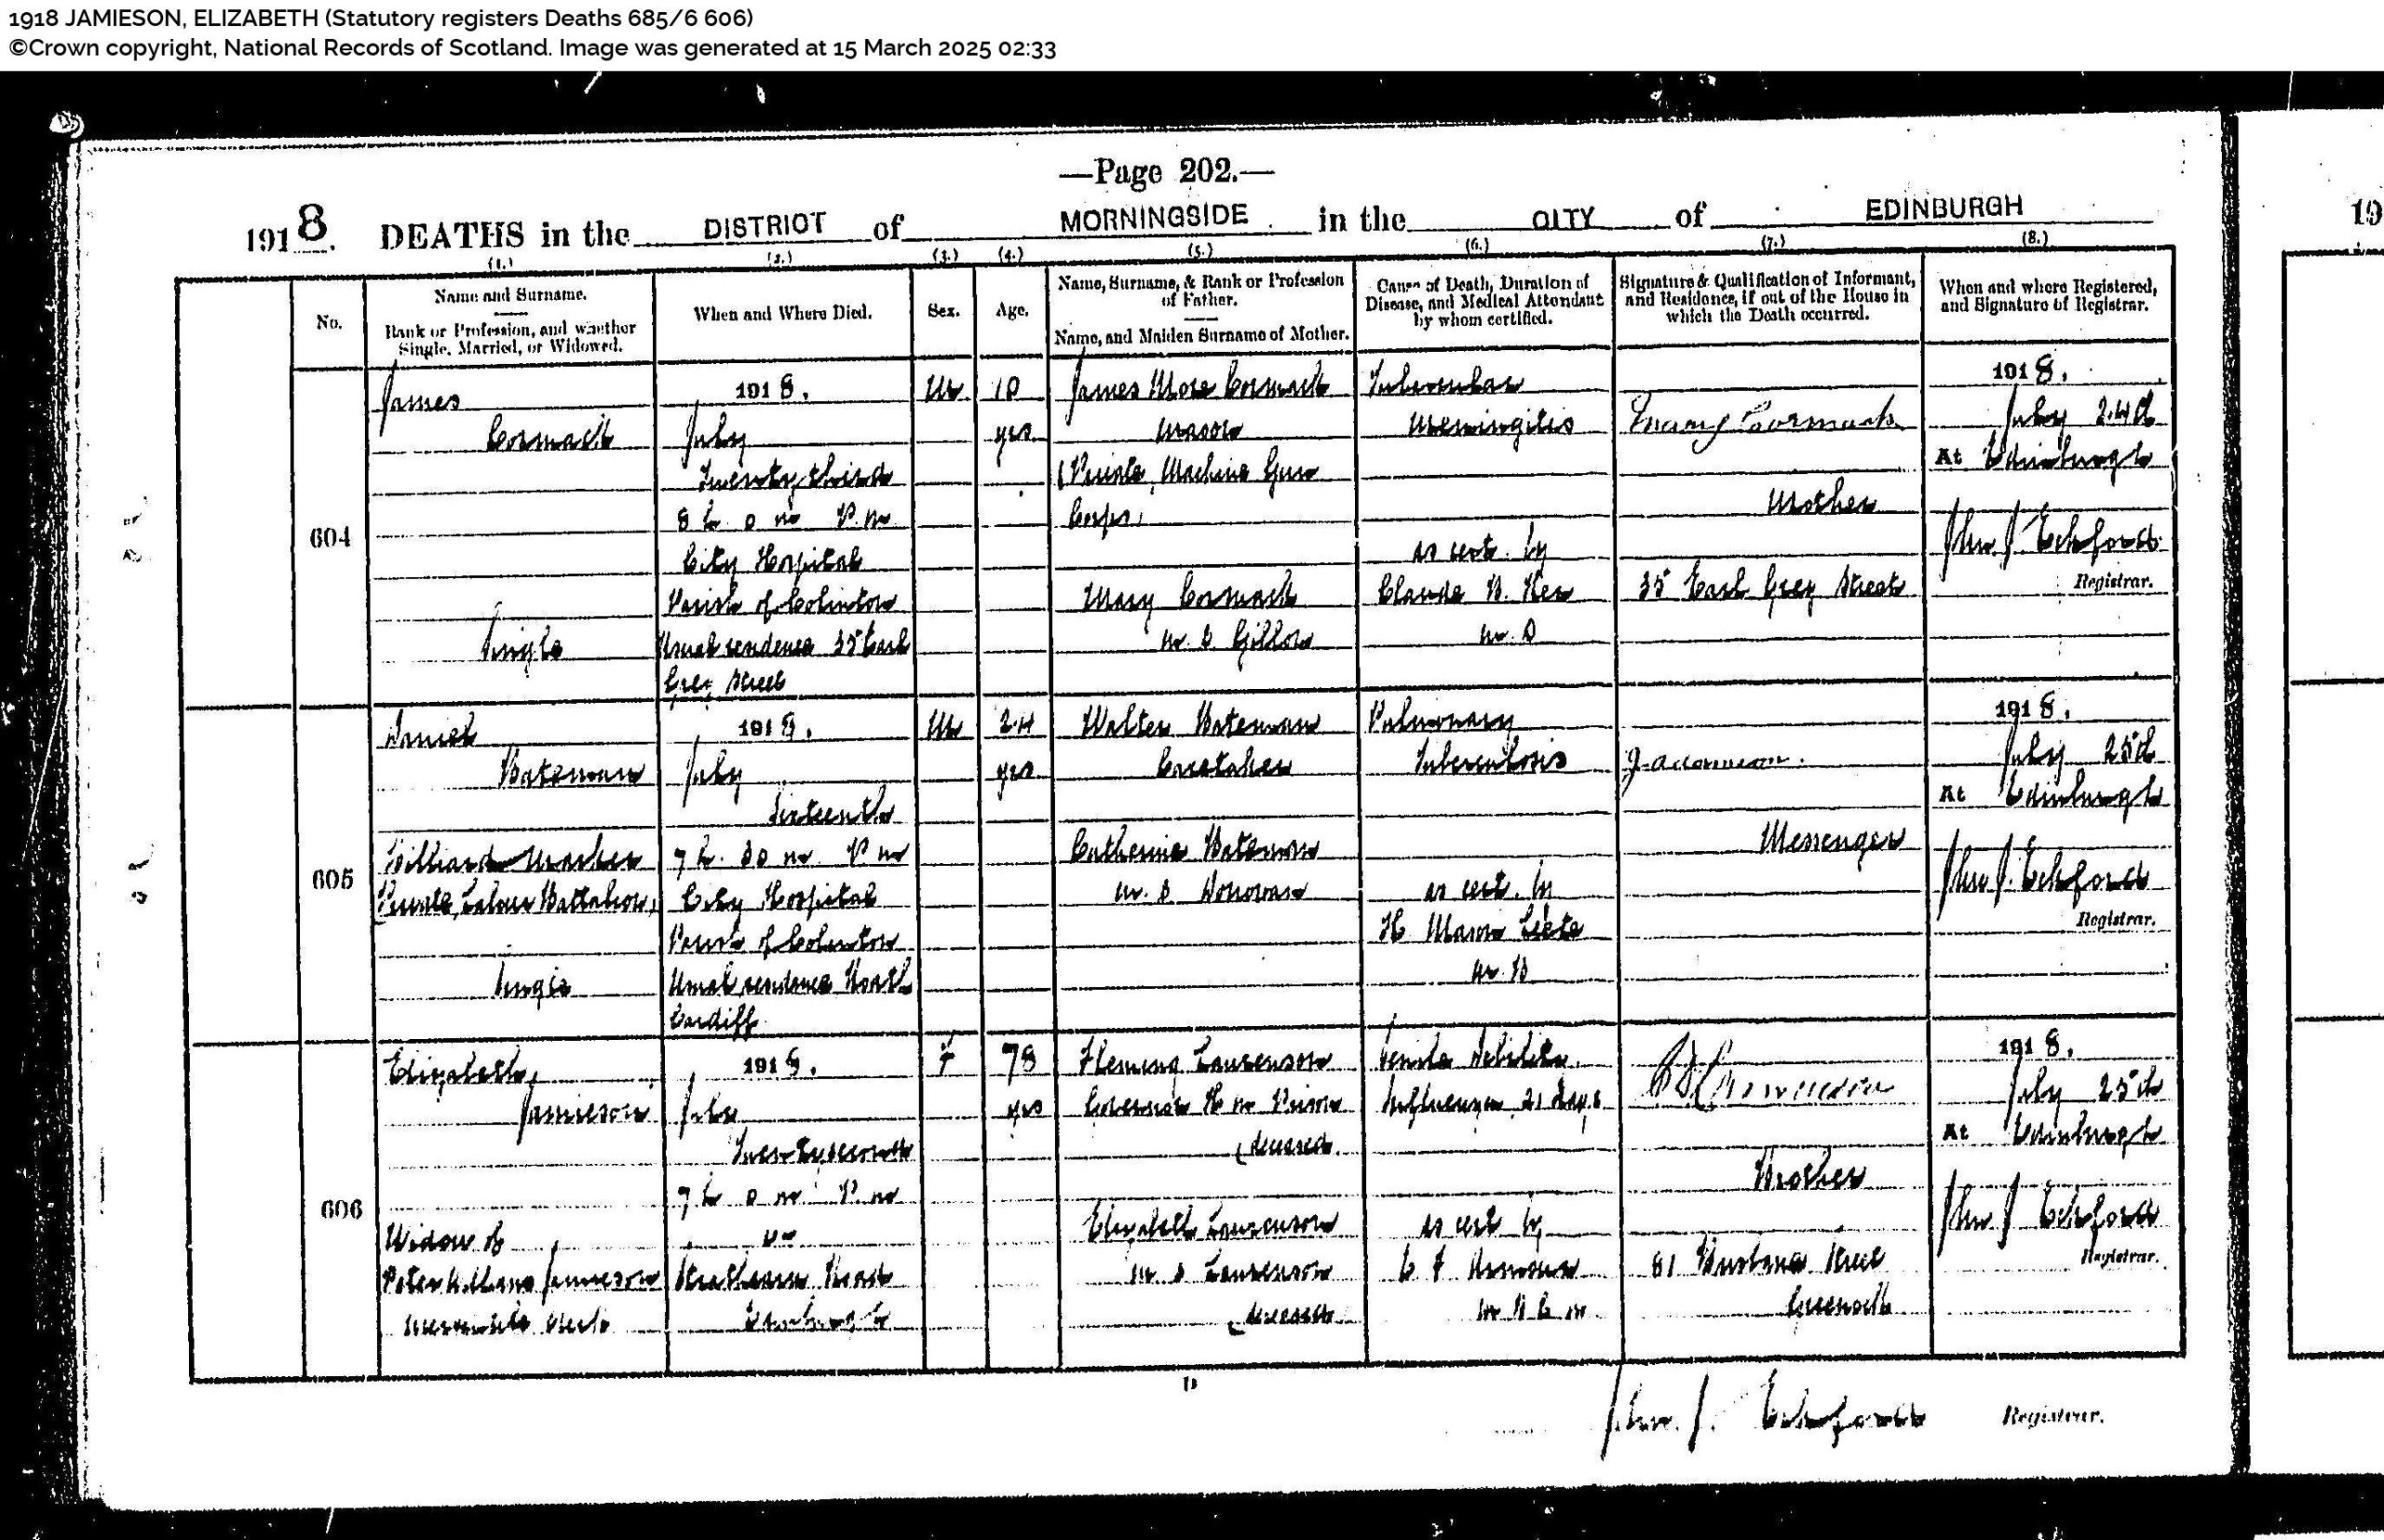 1918 JAMIESON, ELIZABETH (Statutory registers Deaths 685/6 606)
©Crown copyright, National Records of Scotland. Image was generated at 15 March 2025 02:33
—Page 202.—
1918. DEATHS in the DISTRICT of MORNINGSIDE in the CITY of EDINBURGH
19
(1.) (2.) (3.) (4.) (5.) (6.) (7.) (8.)
No.
Name and Surname.
Rank or Profession, and whether
Single, Married, or Widowed.
When and Where Died.
Sex.
Age.
Name, Surname, & Rank or Profession
of Father.
Name, and Maiden Surname of Mother.
Cause of Death, Duration of
Disease, and Medical Attendant
by whom certified.
Signature & Qualification of Informant,
and Residence, if out of the House in
which the Death occurred.
When and where Registered,
and Signature of Registrar.
604
James
Cormack
Single
1918.
July
Twenty third
8 h. 0 m P.m
City Hospital
Parish of Colinton
Usual residence 35 Earl
Grey Street
M
10
yrs
James More Cormack
Mason
(Private, Machine Gun
Corps)
Mary Cormack
m. s Gillon
Tubercular
Meningitis
as cert. by
Claude B. Ker
m. D
Mary Cormack
Mother
35 Earl Grey Street
1918.
July 24th
At Edinburgh
John J. Eckford
Registrar.
605
Daniel
Bateman
Billiard Marker
(Private, Labour Battalion)
Single
1918.
July
Sixteenth
7 h. 30 m. P m
City Hospital
Parish of Colinton
Usual residence North
Cardiff
M
24
yrs
Walter Bateman
Caretaker
Catherine Bateman
m. s Donovan
Pulmonary
Tuberculosis
as cert. by
H Mason Leete
m. B
J. Adamson.
Messenger
1918.
July 25th
At Edinburgh
John J. Eckford
Registrar.
606
Elizabeth
Jamieson
Widow of
Peter Jamieson
Mercantile Clerk
1918.
July
Twenty second
7 h 0 m P. m
Strathearn Road
Edinburgh
F
78
yrs
Fleming Laurenson
Governor H m Prison
(deceased
Elizabeth Laurenson
m s Laurenson
(deceased
Senile Debility.
Influenza, 21 days
as cert by
m B C m
Brother
61 Street
Greenock
1918.
July 25th
At Edinburgh
John J Eckford
Registrar.
D
John J. Eckford Registrar.